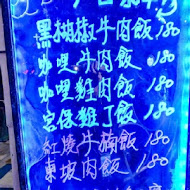 黑胡椒牛肉飯 180
咖哩牛肉飯 180
咖哩雞肉飯 180
宮保雞丁飯 180
紅燒牛腩飯 180
東坡肉飯 180